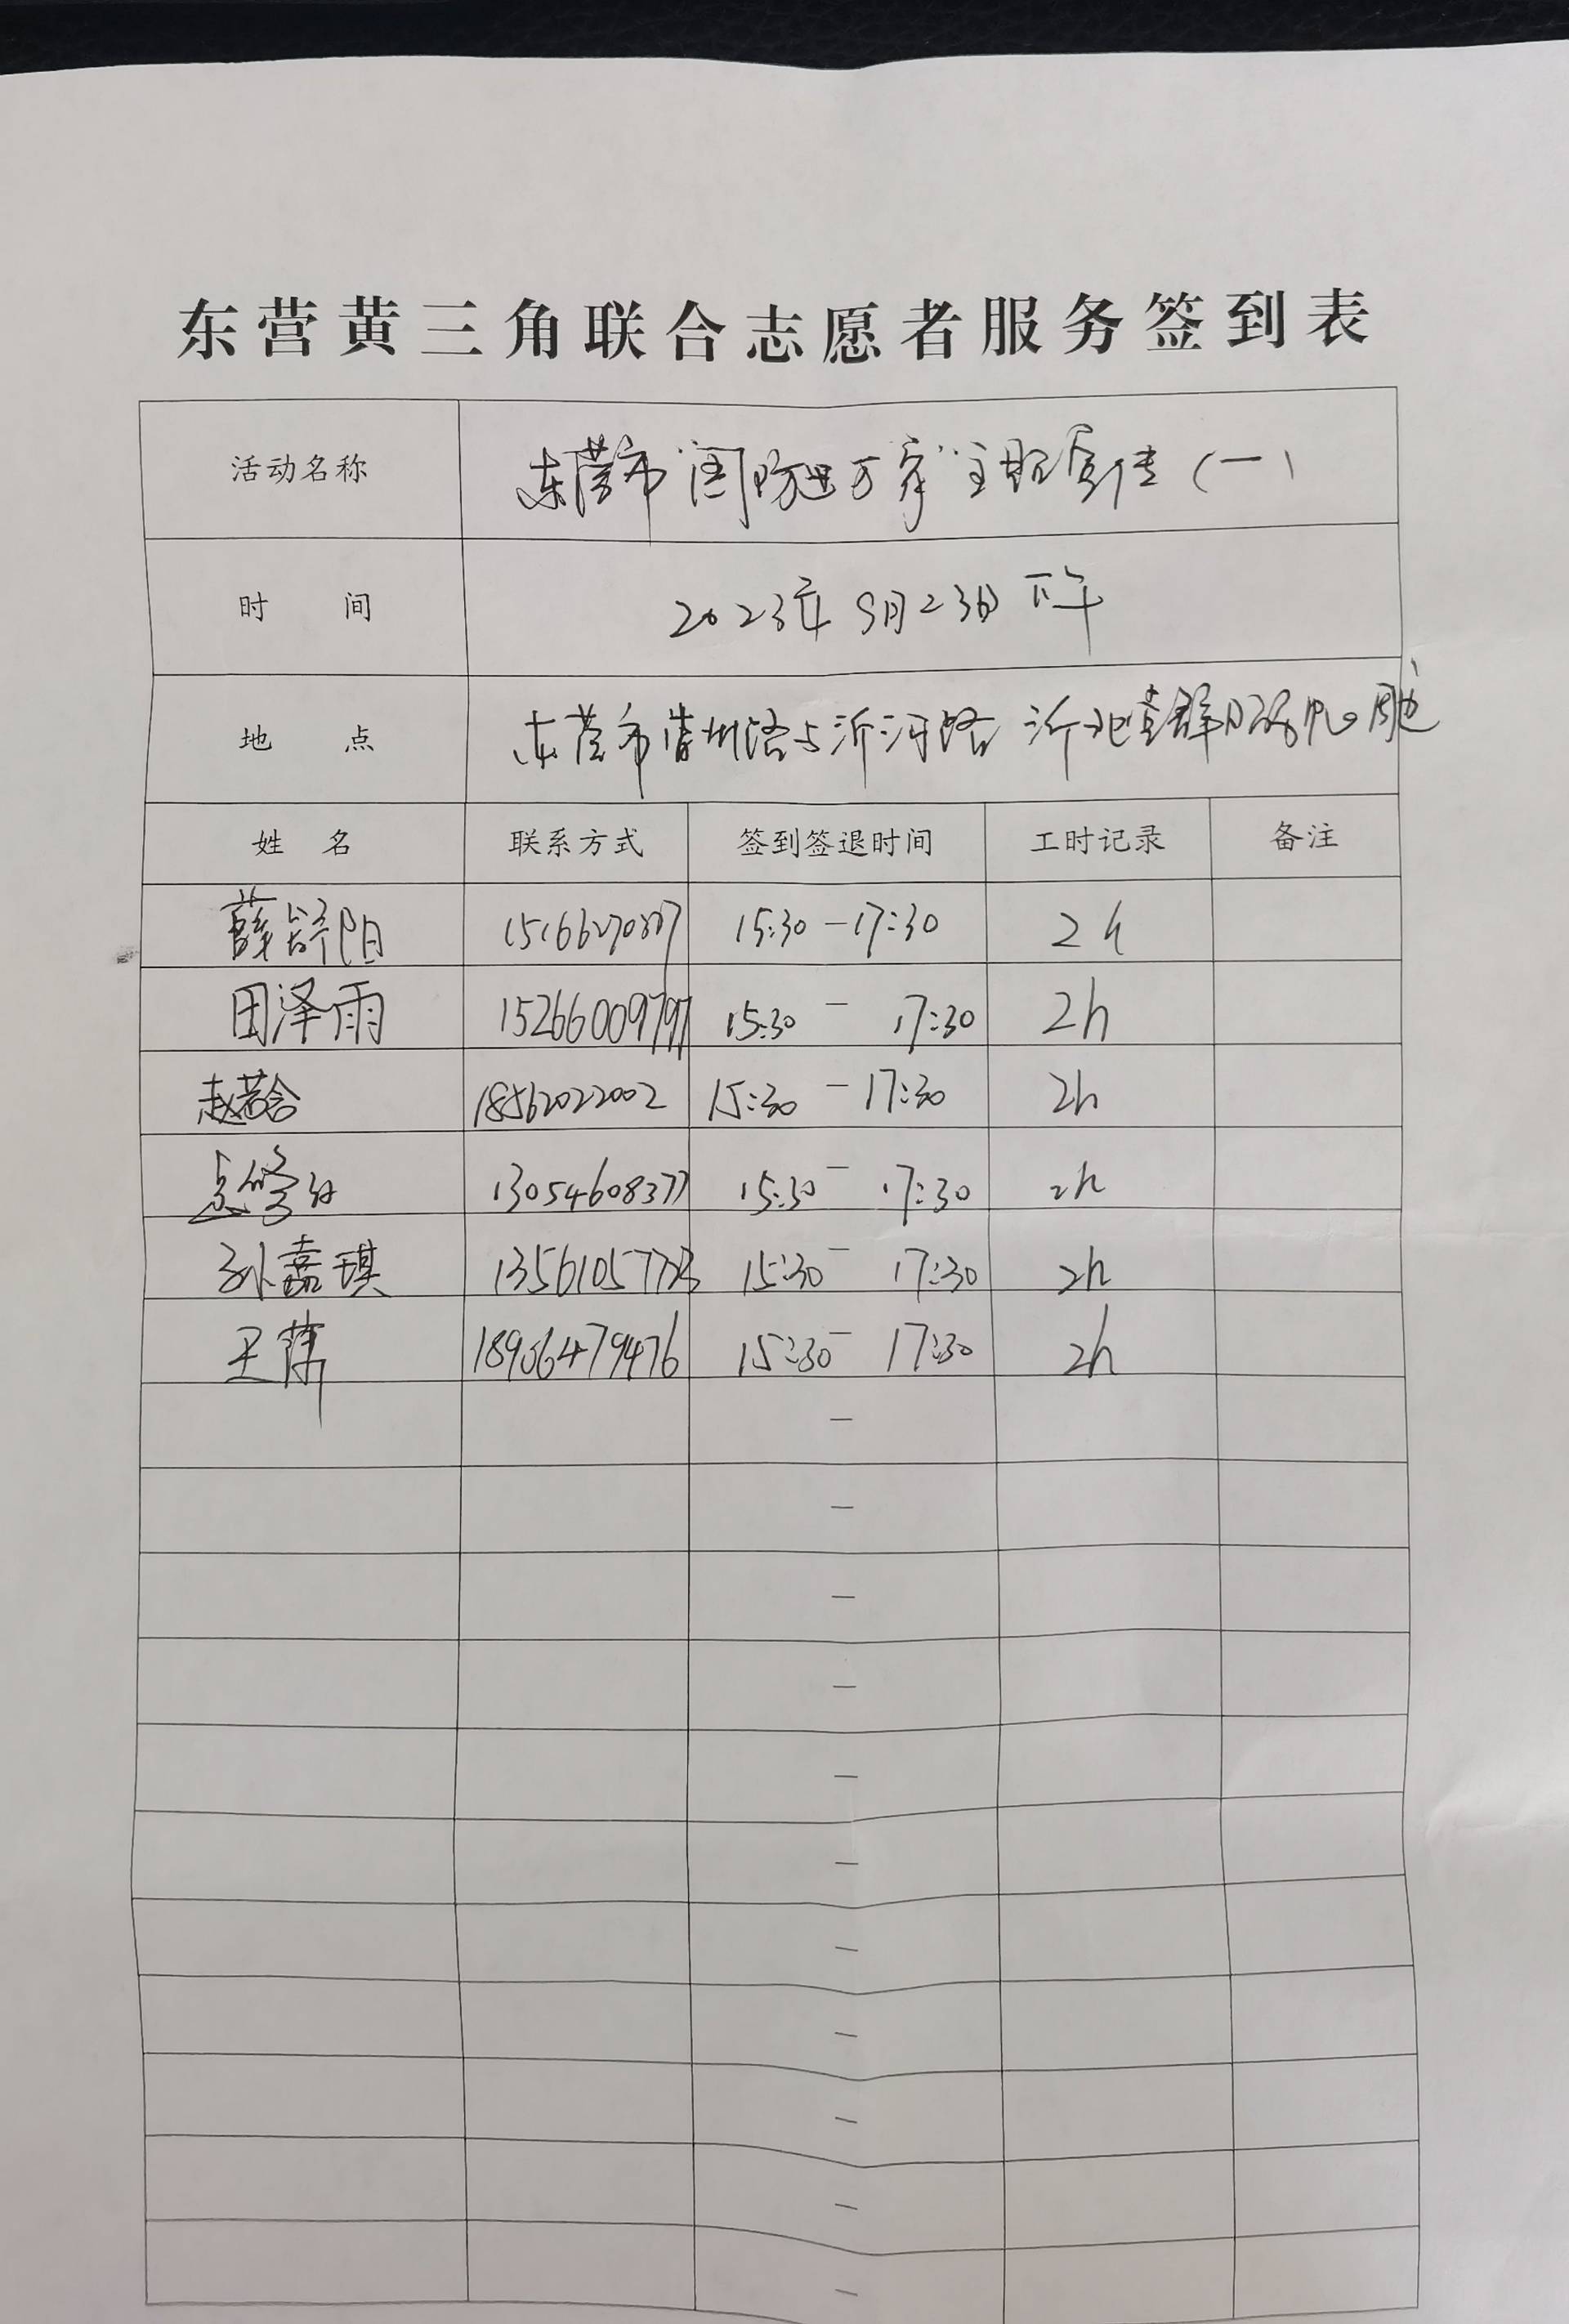 东营黄三角联合志愿者服务签到表
活动名称 东营市"国防进万家"主题宣传(一)
时 间 2023年9月23日下午
地 点 东营市青州路与沂河路 沂北党群服务中心周边
姓 名 联系方式 签到签退时间 工时记录 备注
薛舒阳 15:30-17:30 2h
田泽雨 15266009797 15:30 - 17:30 2h
赵若含 18562022002 15:30 - 17:30 2h
13054608377 15:30 - 17:30 2h
孙嘉琪 15:30 - 17:30 2h
王蒲 18906479476 15:30 - 17:30 2h
-
-
-
-
-
-
-
-
-
-
-